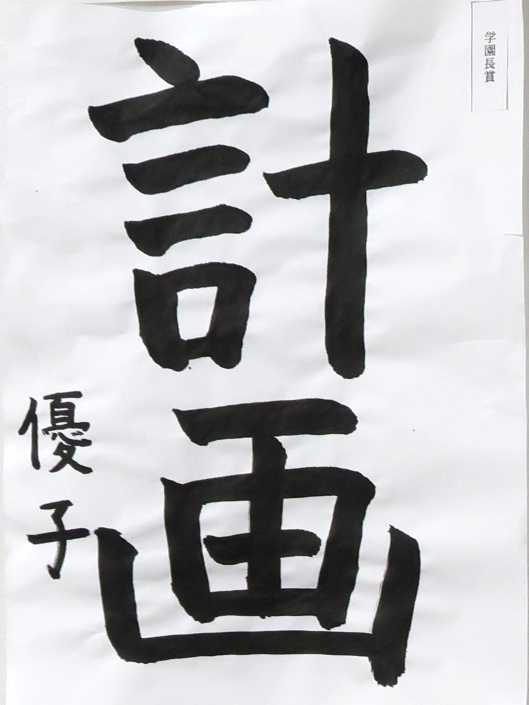 学園長賞
計画
優子